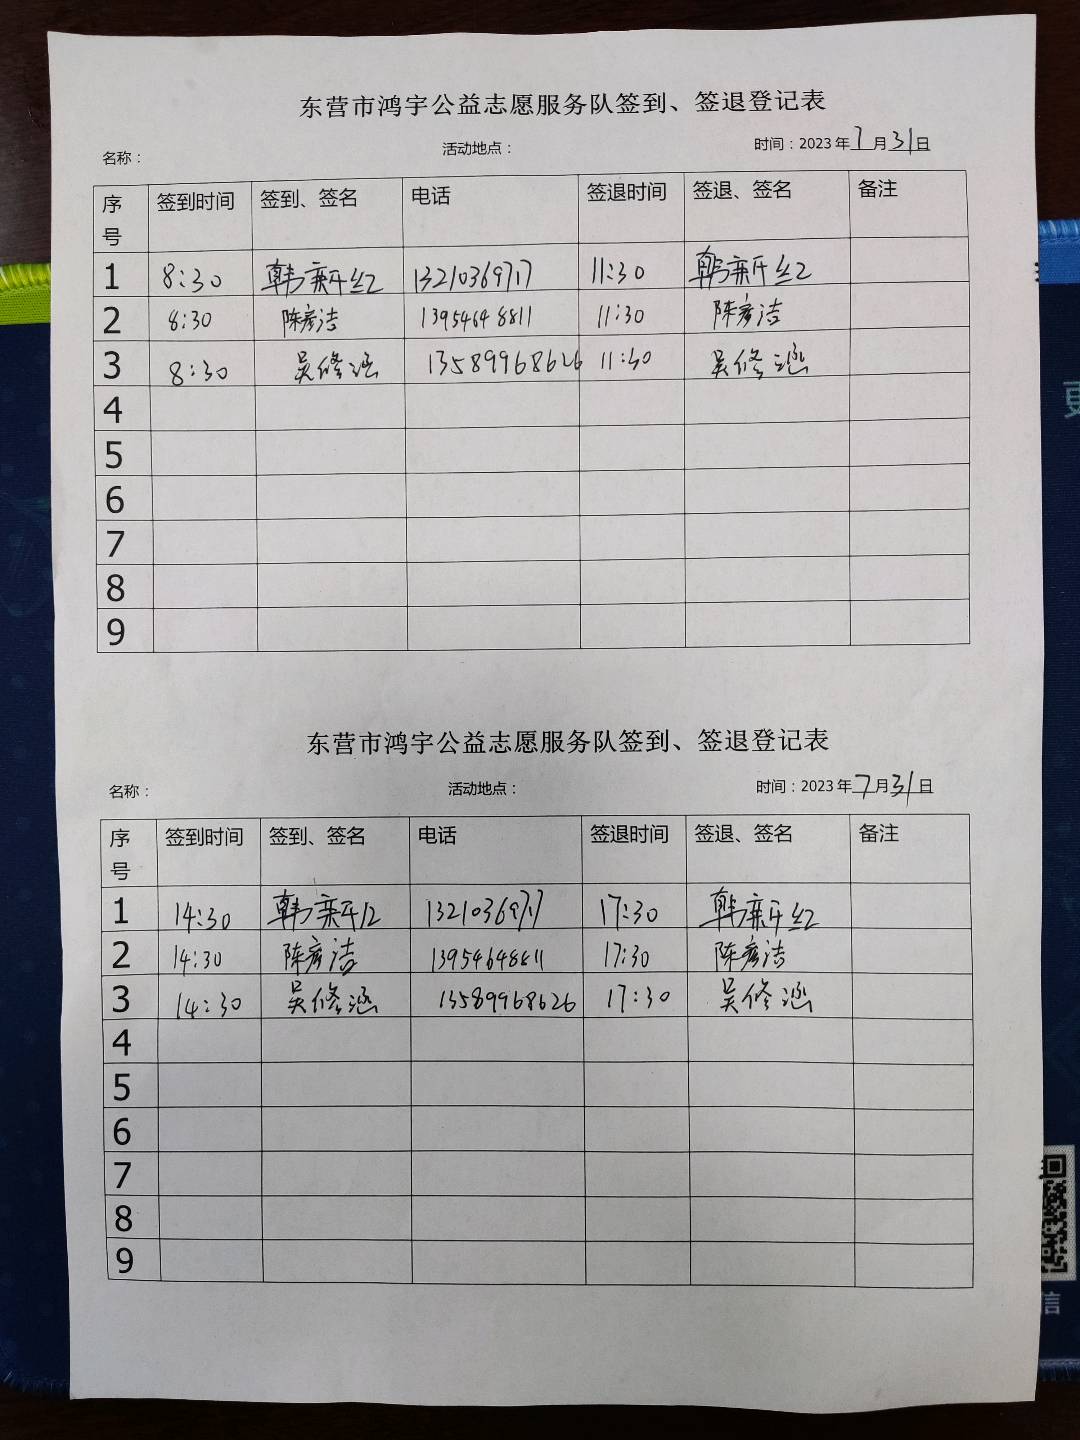 东营市鸿宇公益志愿服务队签到、签退登记表
名称： 活动地点： 时间：2023年7月31日
序号 签到时间 签到、签名 电话 签退时间 签退、签名 备注
1 8:30 韩 13210369717 11:30 韩
2 8:30 陈彦洁 13954648811 11:30 陈彦洁
3 8:30 吴修涵 13589968626 11:30 吴修涵
4
5
6
7
8
9
东营市鸿宇公益志愿服务队签到、签退登记表
名称： 活动地点： 时间：2023年7月31日
序号 签到时间 签到、签名 电话 签退时间 签退、签名 备注
1 14:30 韩 13210369717 17:30 韩
2 14:30 陈彦洁 13954648811 17:30 陈彦洁
3 14:30 吴修涵 13589968626 17:30 吴修涵
4
5
6
7
8
9
信